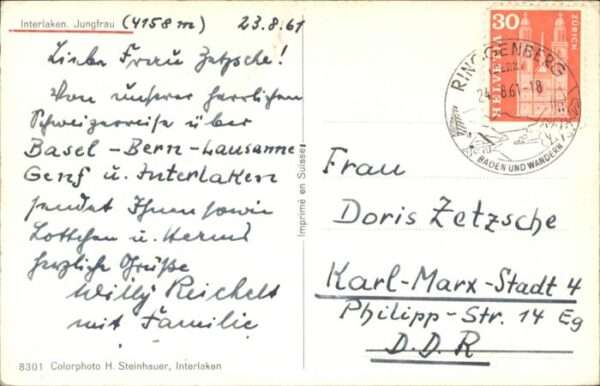 Interlaken. Jungfrau (4158 m) 23.8.61
Liebe Frau Zetzsche!
Von unserer herrlichen
Schweizerreise über
Basel - Bern - Lausanne
Genf u. Interlaken
sendet Ihnen sowie
Lottchen u. Hermi
herzliche Grüße
Willy Reichelt
mit Familie
8301 Colorphoto H. Steinhauer, Interlaken
Imprimé en Suisse
30
HELVETIA
ZÜRICH
RINGGENBERG
24.8.61-18
BADEN UND WANDERN
Frau
Doris Zetzsche
Karl-Marx-Stadt 4
Philipp-Str. 14 Eg
D.D.R